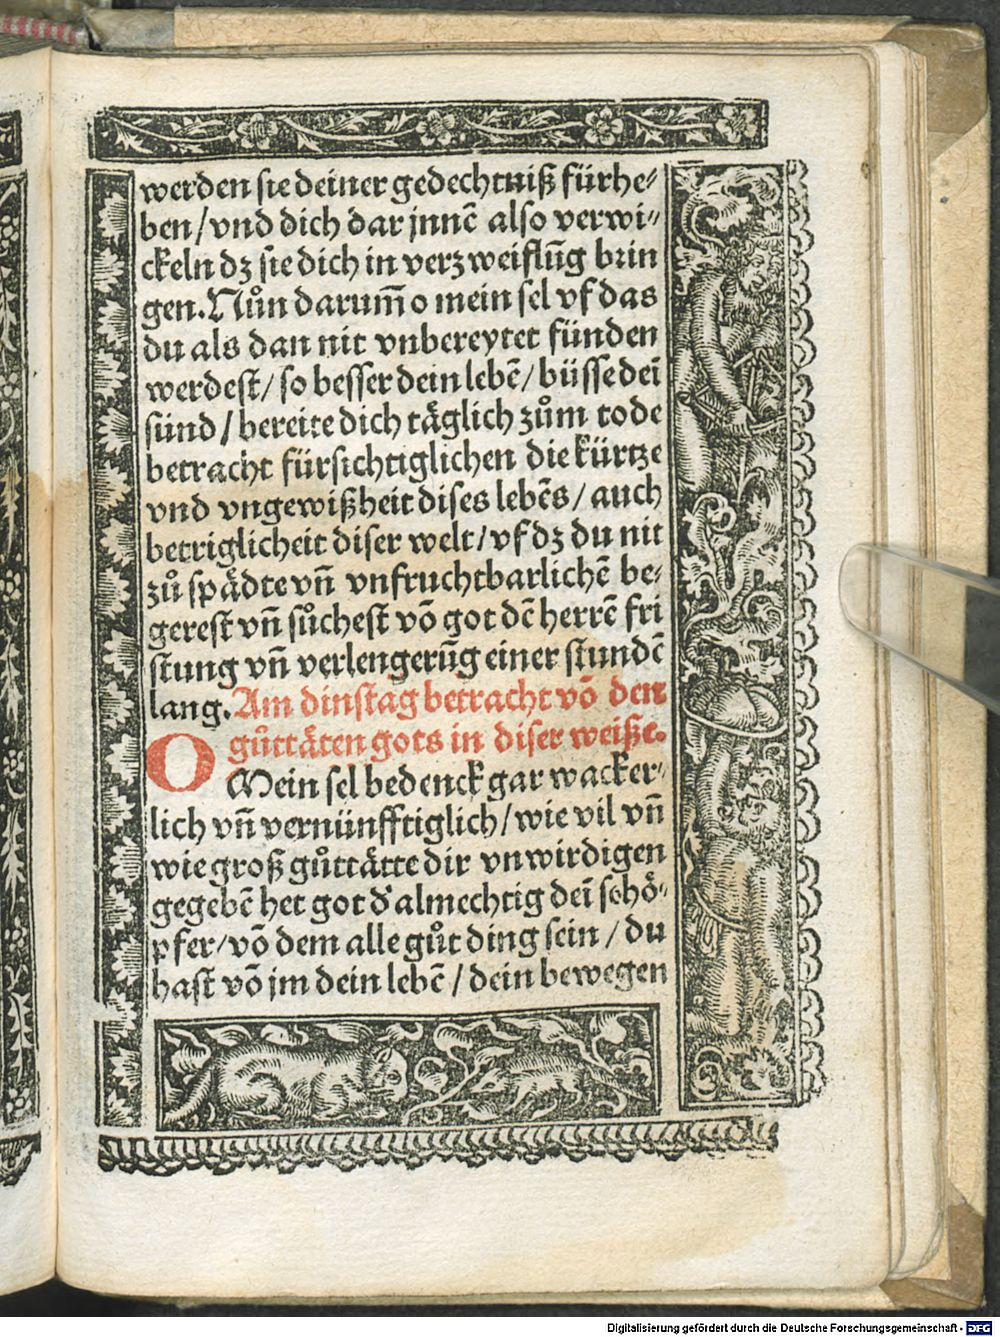 werden sie deiner gedechtniß fürhe⸗
ben/vnd dich dar jnnē also verwi⸗
ckeln dz sie dich in verzweiflūg brin
gen. Nůn darum̄ o mein sel vf das
du als dan nit vnbereytet fünden
werdest/ so besser dein lebē/ büsse dei
sünd/ bereite dich täglich zům tode
betracht fürsichtiglichen die kürtze
vnd vngewißheit dises lebēs/ auch
betriglicheit diser welt/vf dz du nit
zů spädte vn̄ vnfruchtbarlichē be⸗
gerest vn̄ sůchest vō got dē herrē fri
stung vn̄ verlengerūg einer stundē
lang. Am dinstag betracht vō den
gůttäten gots in diser weiße.
O Mein sel bedenck gar wacker⸗
lich vn̄ vernünfftiglich/wie vil vn̄
wie groß gůttätte dir vnwirdigen
gegebē het got d' almechtig dei schö⸗
pfer/vō dem alle gůt ding sein/ du
hast vō jm dein lebē/ dein bewegen
Digitalisierung gefördert durch die Deutsche Forschungsgemeinschaft - DFG